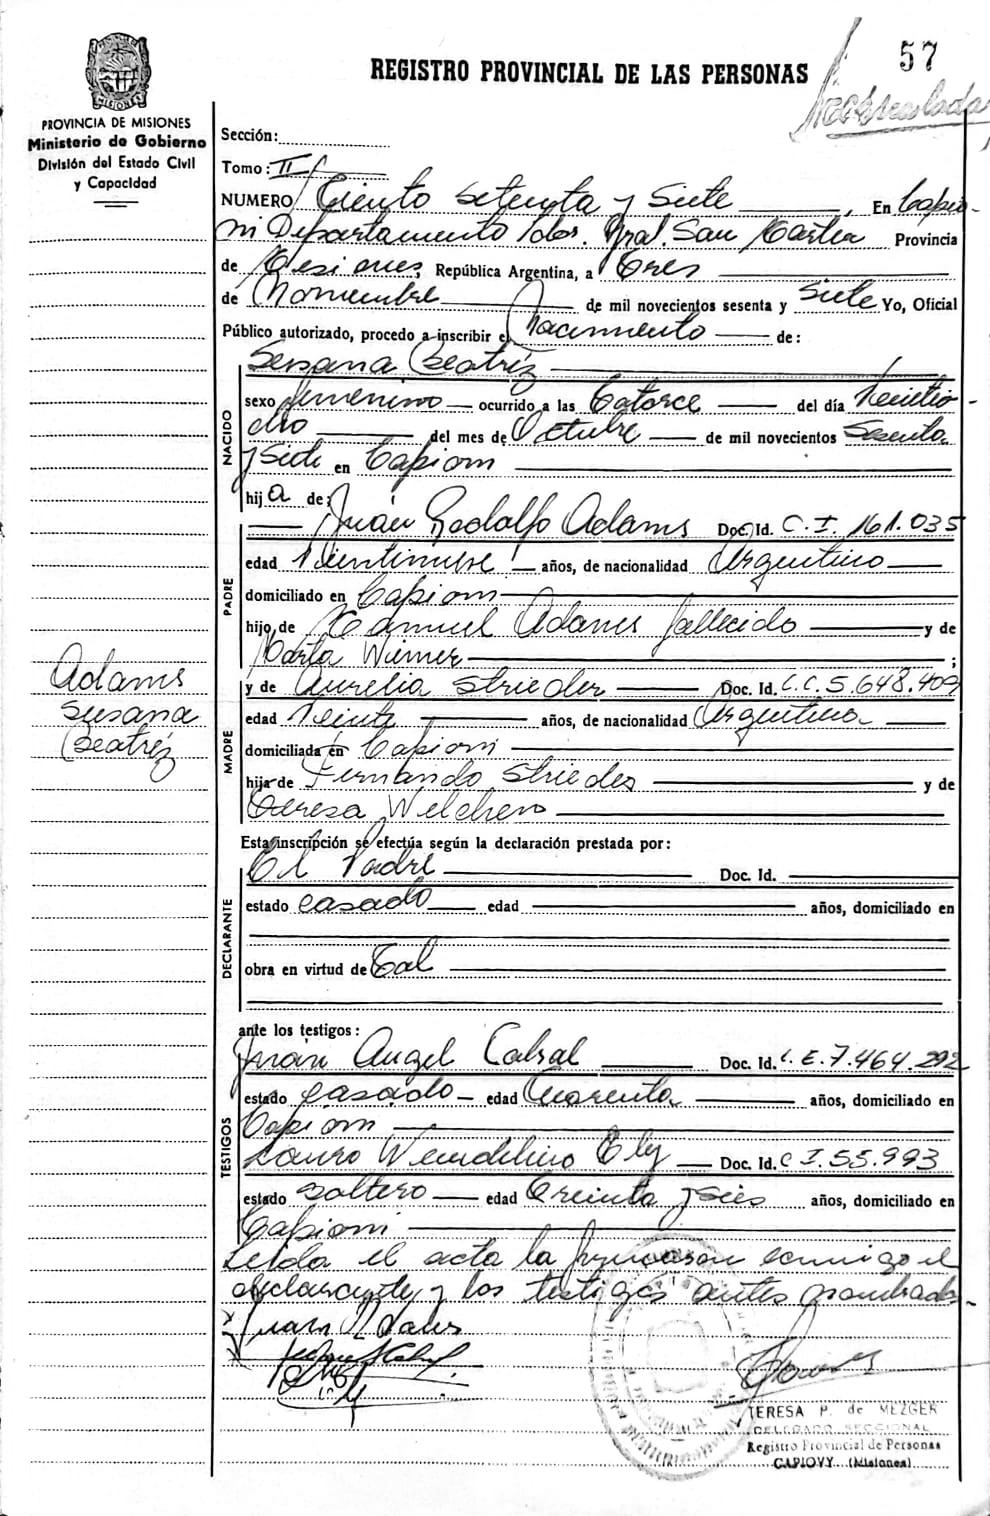 57
REGISTRO PROVINCIAL DE LAS PERSONAS
MISIONES
PROVINCIA DE MISIONES
Ministerio de Gobierno
División del Estado Civil
y Capacidad
Sección:
Tomo: II
NUMERO Ciento setenta y Siete, En Capio-
ni Departamento Ldor. Gral. San Martin Provincia
de Misiones, República Argentina, a Tres
de Noviembre de mil novecientos sesenta y Siete Yo, Oficial
Público autorizado, procedo a inscribir el Nacimiento de:
Susana Beatríz
NACIDO
sexo femenino ocurrido a las Catorce del día Veintio-
cho del mes de Octubre de mil novecientos Sesenta
y Siete en Capiovi
hija de:
PADRE
Juan Rodolfo Adams Doc. Id. C. I. 161.035
edad Veintinueve años, de nacionalidad Argentino
domiciliado en Capiovi
hijo de Samuel Adams fallecido y de
Marta Wimer;
MADRE
y de Aurelia Strieder Doc. Id. L.C. 5.648.409
edad Veinte años, de nacionalidad Argentina
domiciliada en Capiovi
hija de Fernando Strieder y de
Teresa Welchen
Adams
Susana
Beatríz
Esta inscripción se efectúa según la declaración prestada por:
DECLARANTE
El Padre Doc. Id.
estado casado edad años, domiciliado en
obra en virtud de Tal
ante los testigos:
TESTIGOS
Juan Angel Cabral Doc. Id. L.E. 7.464.292
estado casado edad Cuarenta años, domiciliado en
Capiovi
Lauro Wendelino Ely Doc. Id. C I. 55.993
estado soltero edad Treinta y Seis años, domiciliado en
Capiovi
Leida el acta la firmaron conmigo el
declarante y los testigos antes nombrados.
Juan Adams
TERESA P. de MEZGER
DELEGADO SECCIONAL
Registro Provincial de Personas
CAPIOVY (Misiones)